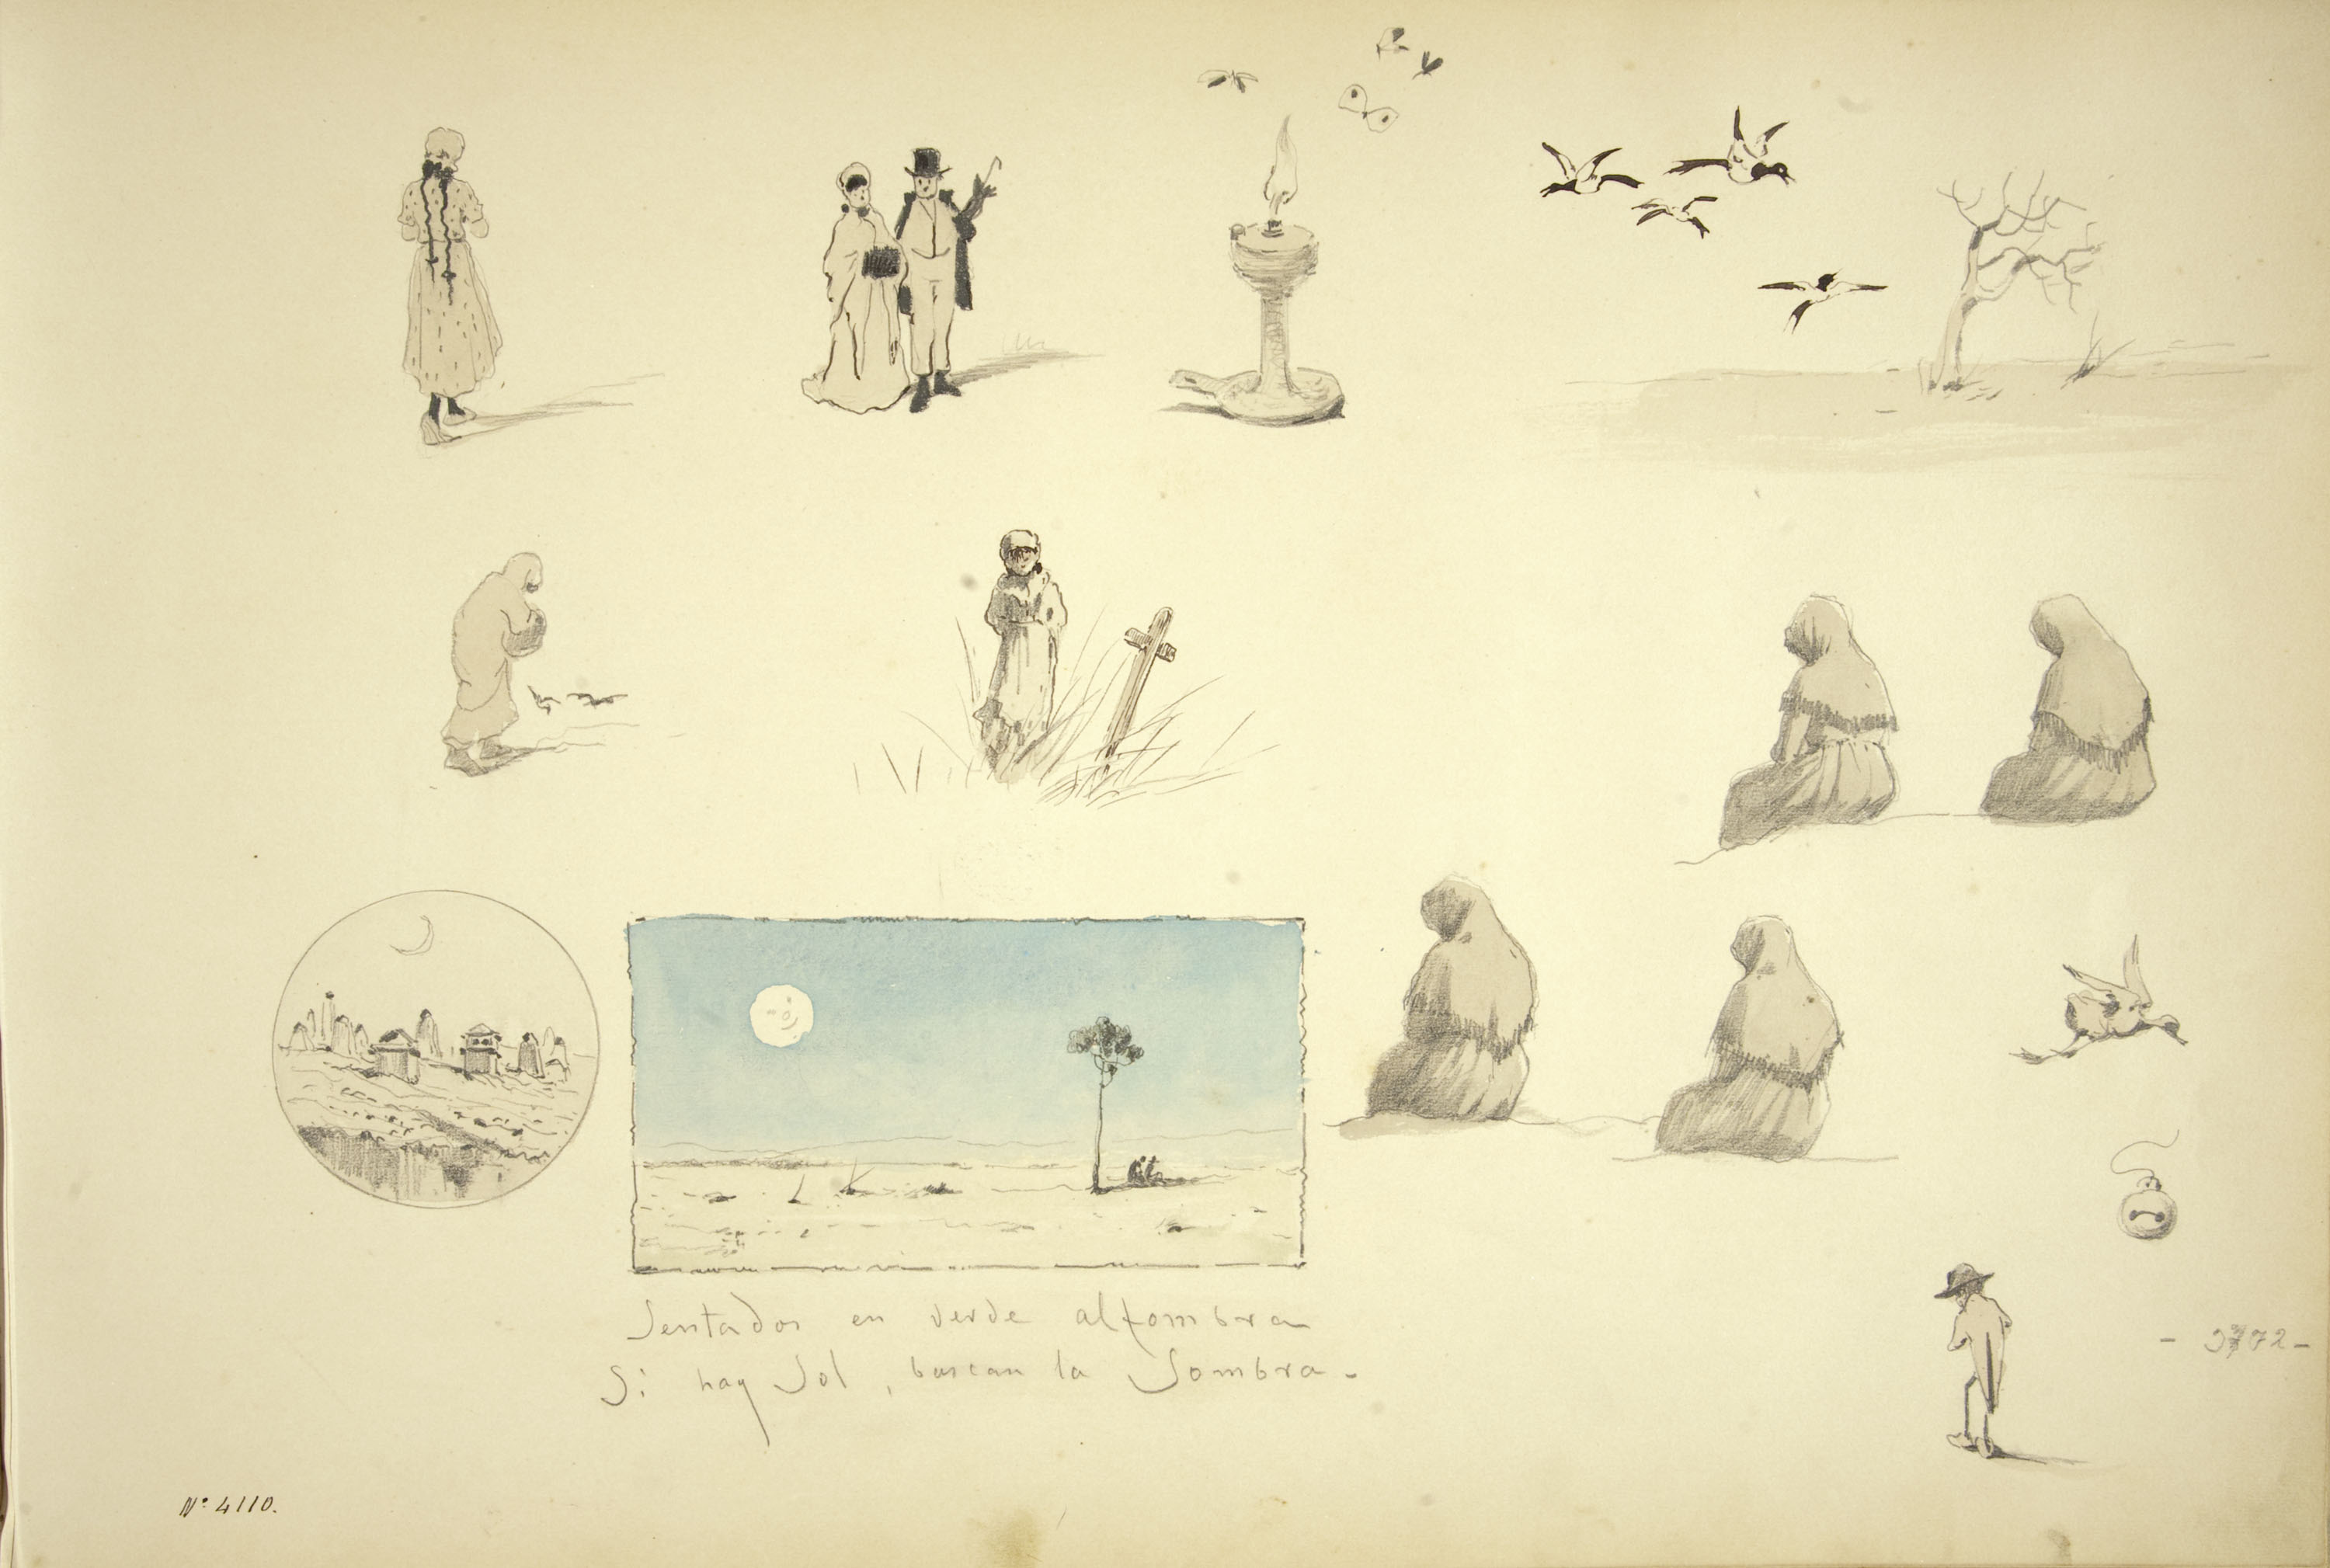 Sentados en verde alfombra
Si hay Sol, buscan la Sombra.
Nº 4110.